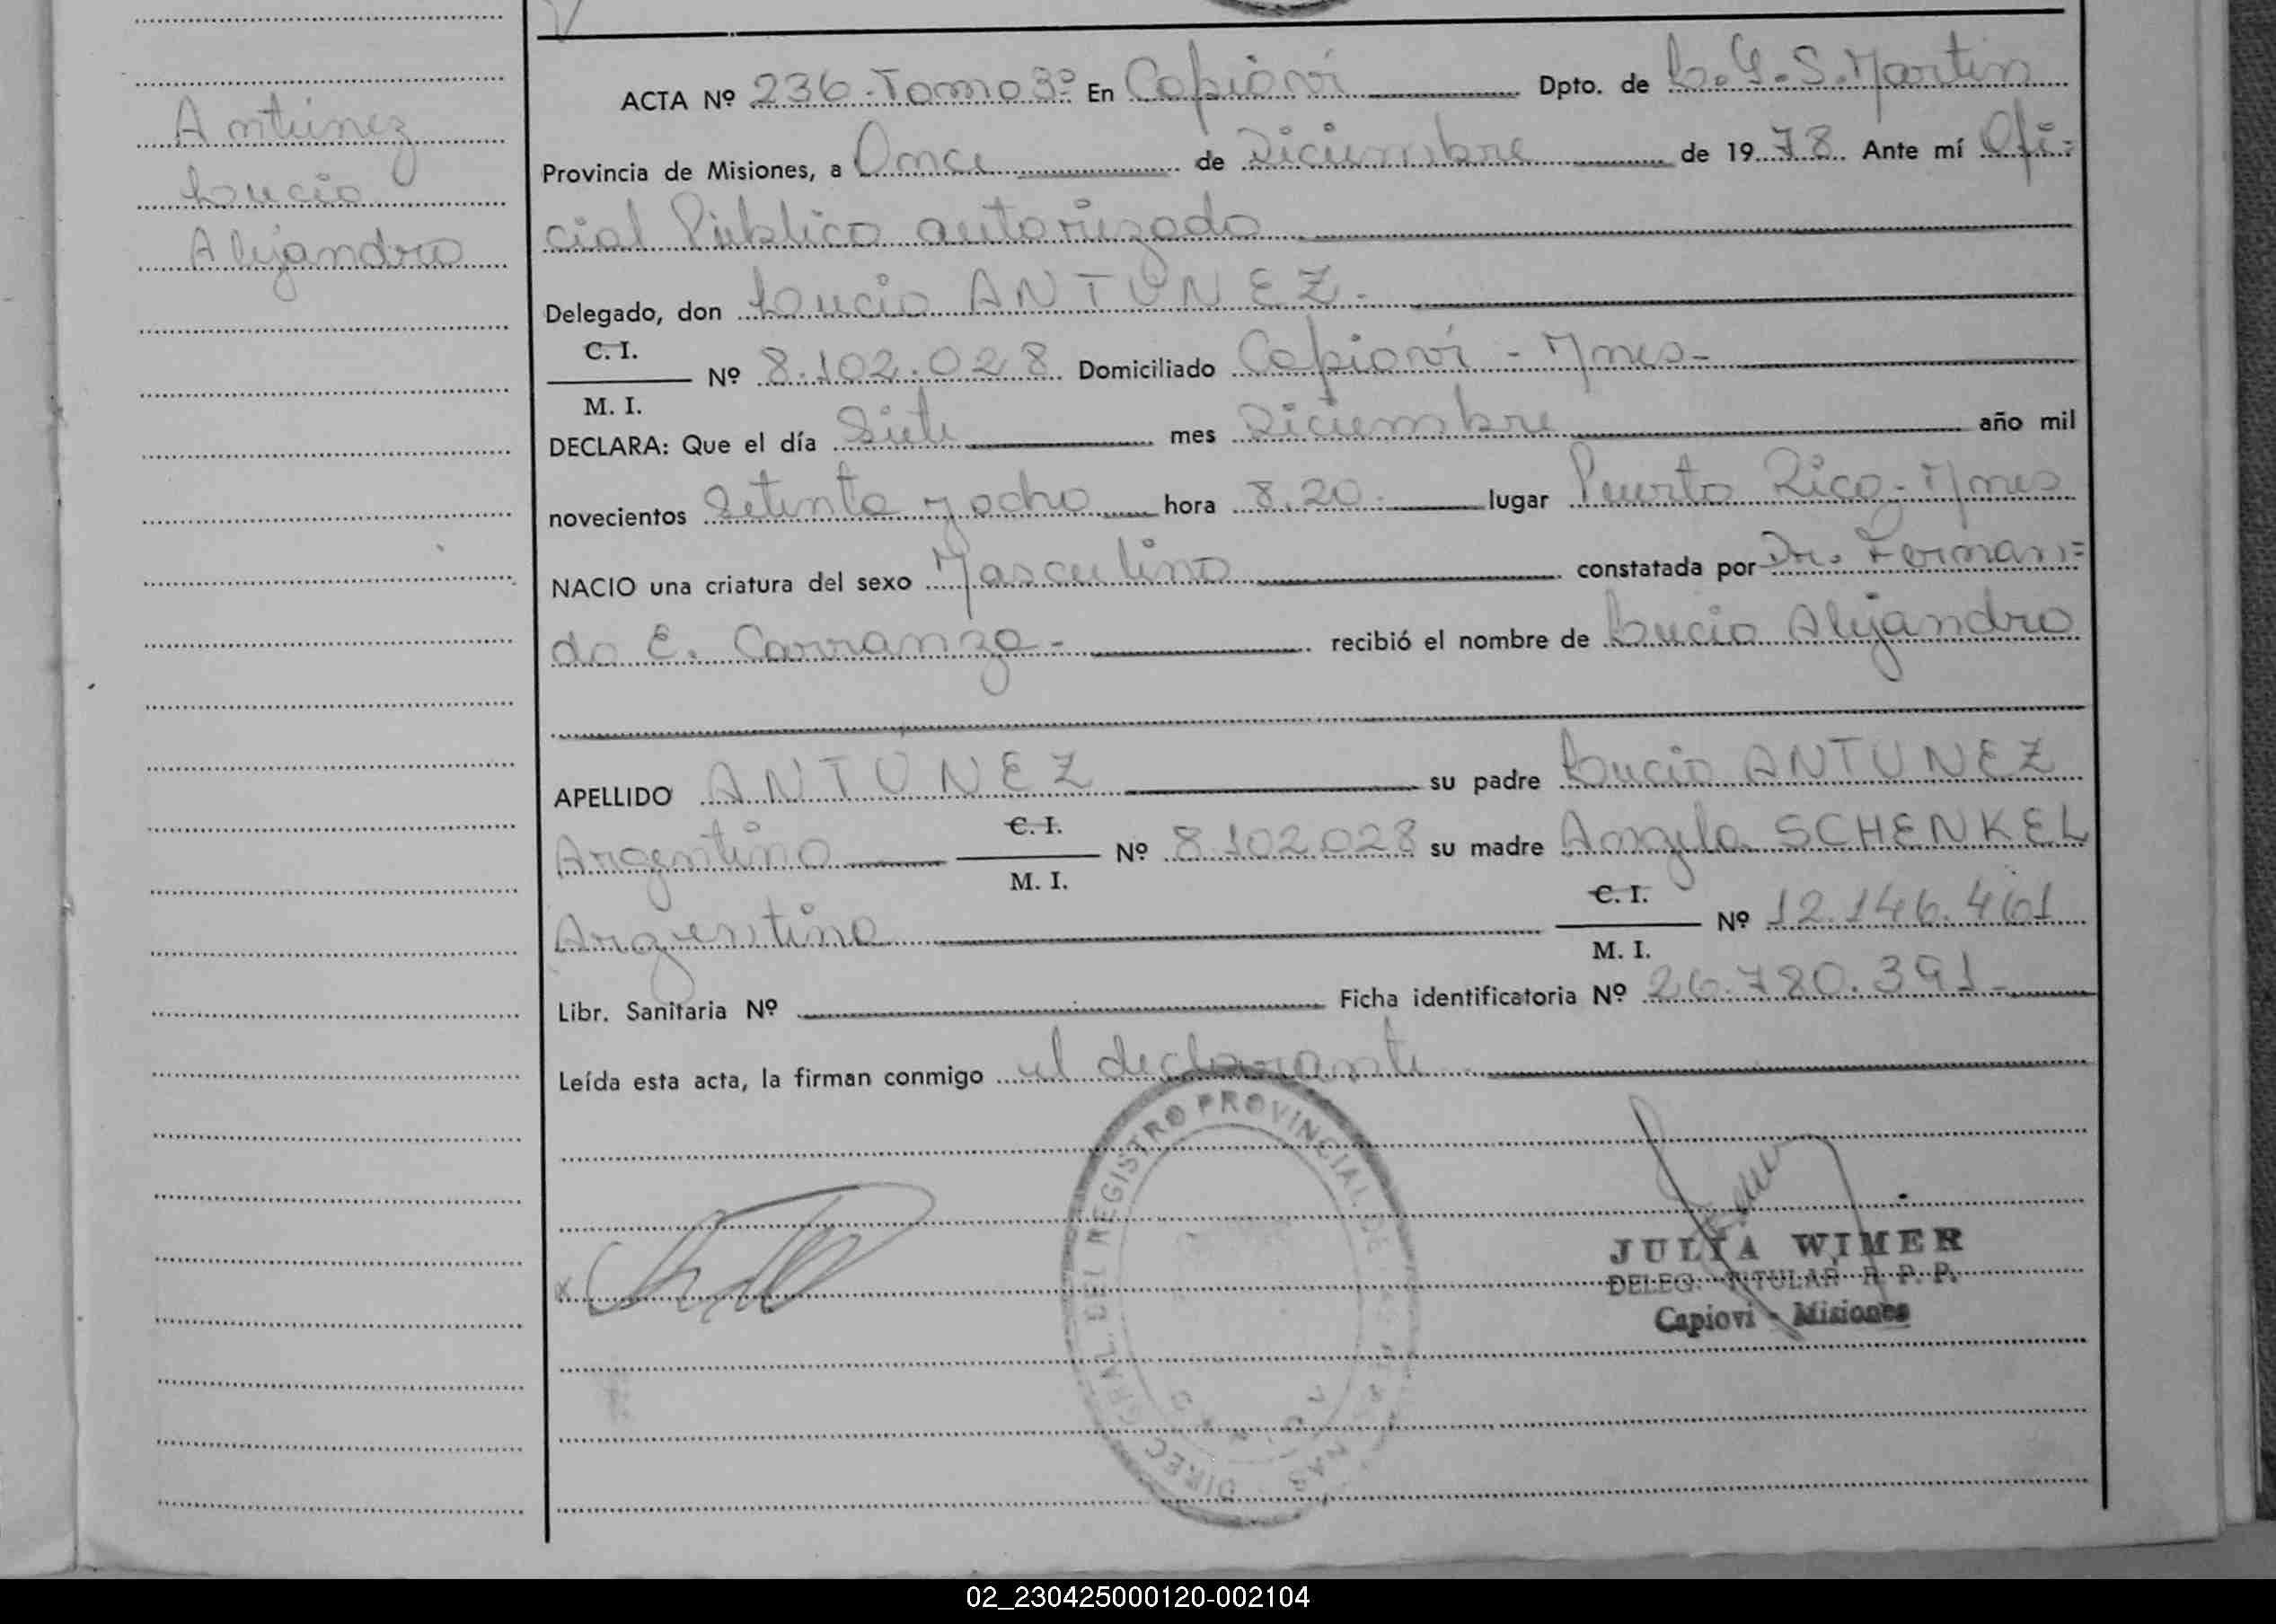 Antúnez
Lucio
Alejandro
ACTA Nº 236. Tomo 3º En Capioví Dpto. de L. G. S. Martin
Provincia de Misiones, a Once de Diciembre de 1978. Ante mí Ofi-
cial Público autorizado
Delegado, don Lucio ANTUNEZ.
C. I.
Nº 8.102.028 Domiciliado Capioví - Mnes-
M. I.
DECLARA: Que el día Siete mes Diciembre año mil
novecientos Setenta y ocho hora 8.20- lugar Puerto Rico - Mnes
NACIO una criatura del sexo Masculino constatada por Dr. Fernan=
do E. Carranza- recibió el nombre de Lucio Alejandro
APELLIDO ANTUNEZ su padre Lucio ANTUNEZ
Argentino C. I. M. I. Nº 8.102.028 su madre Angela SCHENKEL
Argentina C. I. M. I. Nº 12.146.461
Libr. Sanitaria Nº Ficha identificatoria Nº 26.780.391-
Leída esta acta, la firman conmigo el declarante
DIREC GENERAL DEL REGISTRO PROVINCIAL DE
JULIA WIMER
DELEG. TITULAR R. P. P.
Capiovi - Misiones
02_230425000120-002104